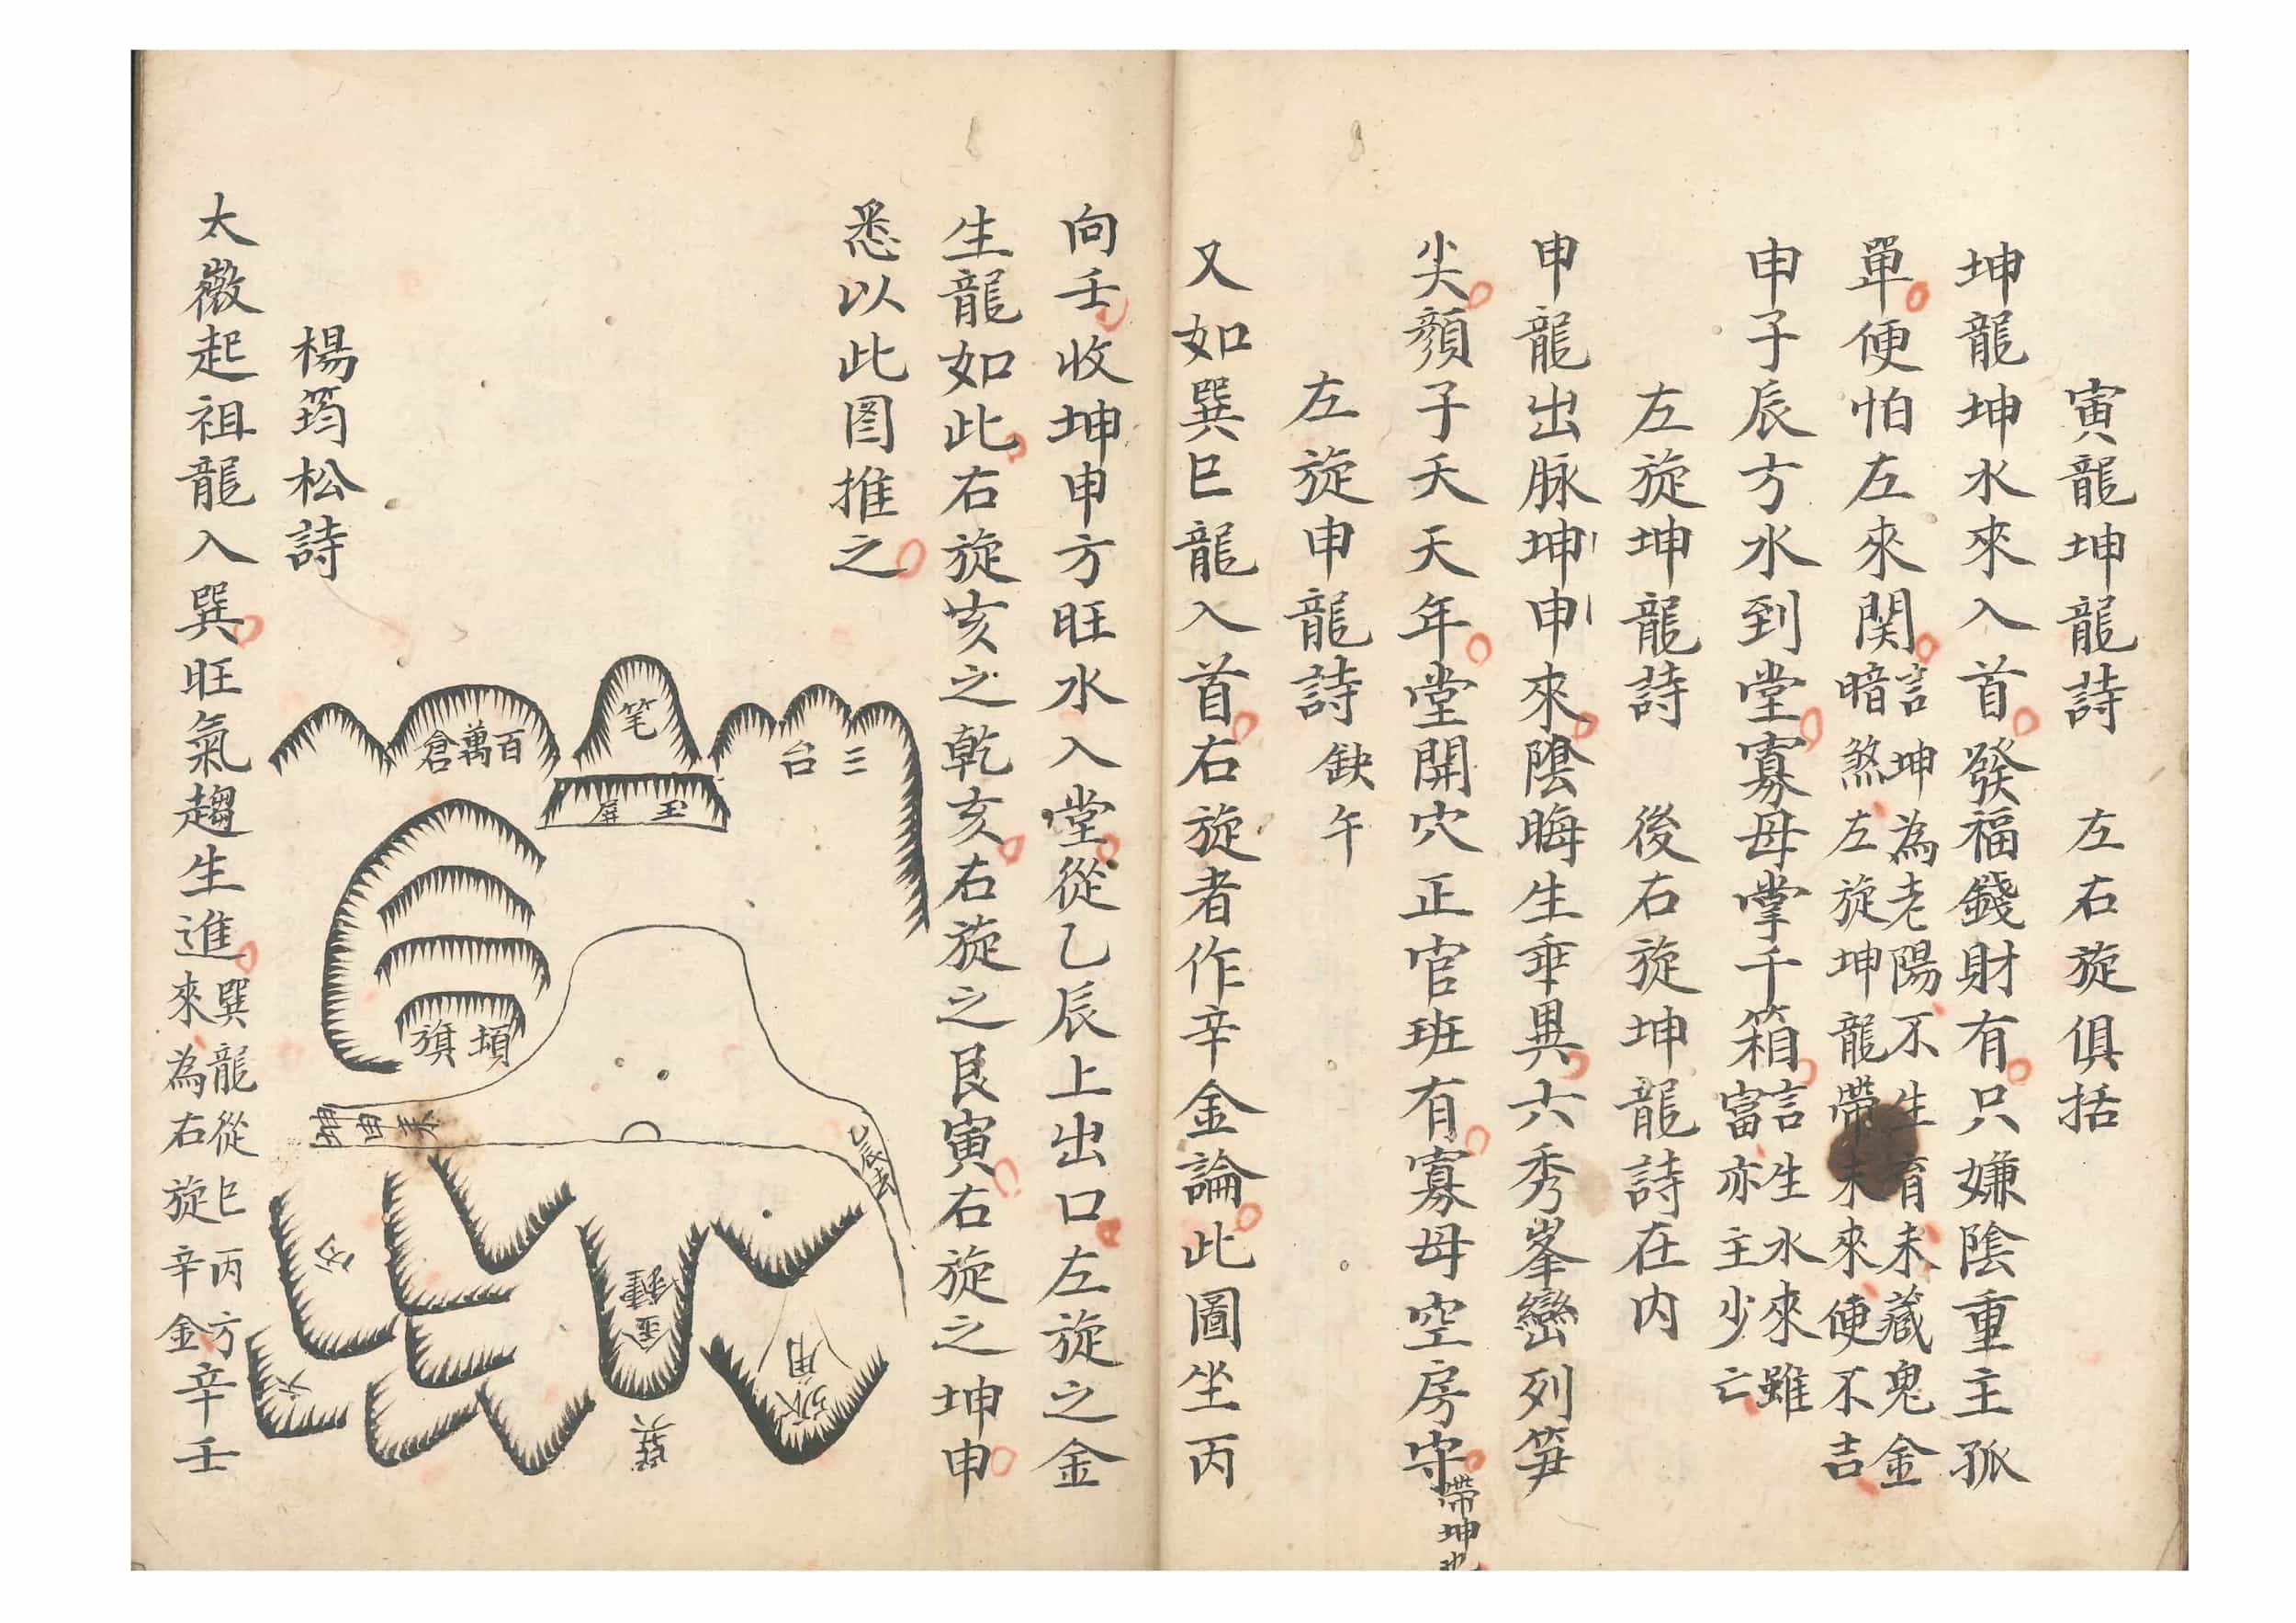 寅龍坤龍詩　左右旋俱括
坤龍坤水來入首發福錢財有只嫌陰重主孤
單便怕左來関言坤為老陽不生育未藏鬼金
暗煞左旋坤龍帶未來便不吉
申子辰方水到堂寡母掌千箱言生水來雖
富亦主少亡
左旋坤龍詩　後右旋坤龍詩在内
申龍出脉坤申來陰晦生乖異六秀峯巒列笋
尖顏子夭天年堂開穴正官班有寡母空房守帶坤
左旋申龍詩　缺午
又如巽巳龍入首右旋者作辛金論此圖坐丙
向壬收坤申方旺水入堂從乙辰上出口左旋之金
生龍如此右旋亥之乾亥右旋之艮寅右旋之坤申
悉以此图推之
三台
笔
玉屏
百萬倉
頓旗
坤申來
乙辰去
金鐘
巽
丙
六
楊筠松詩
太微起祖龍入巽旺氣趨生進巽龍從巳丙方
來為右旋辛金辛壬